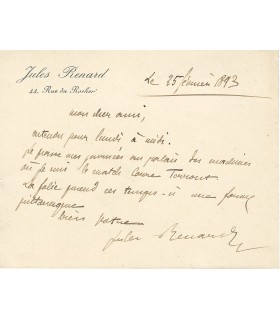 Jules Renard
44, Rue du Rocher
Le 25 février 1893
mon cher ami,
entendu pour lundi à midi.
je passe mes journées au palais des machines
où je suis le match Corre Terront
La folie prend ces temps-ci une forme
pittoresque
bien votre
Jules Renard